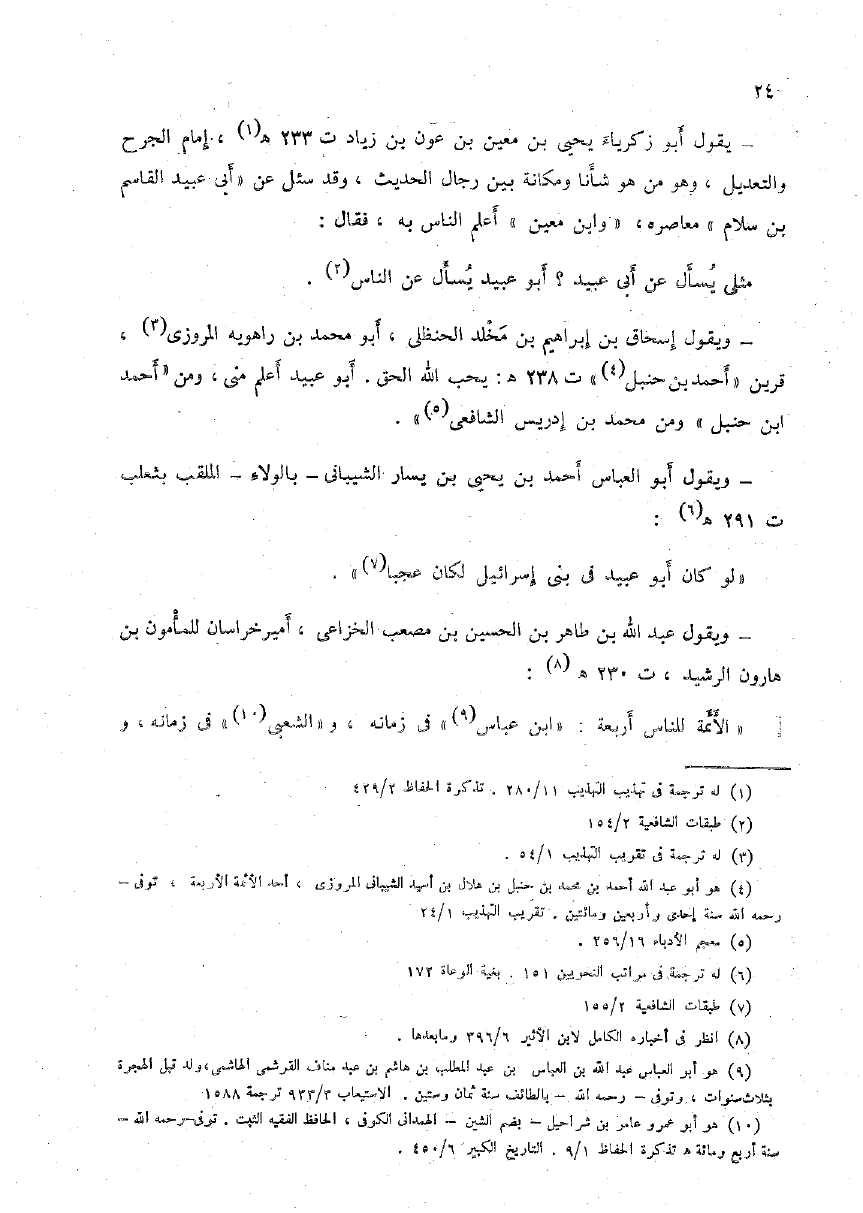 ٢٤
ـ يقول أبو زكرياء يحيى بن معين بن عون بن زياد ت ٢٣٣ ه(١) ، إمام الجرح
والتعديل ، وهو من هو شأنا ومكانة بين رجال الحديث ، وقد سئل عن «أبى عبيد القاسم
بن سلام» معاصره، «وابن معين» أعلم الناس به ، فقال :
مثلى يُسأَل عن أبى عبيد ؟ أبو عبيد يُسأَل عن الناس(٢) .
ـ ويقول إسحاق بن إبراهيم بن مَخْلد الحنظلى ، أبو محمد بن راهويه المروزى(٣) ،
قرين «أحمد بن حنبل(٤)» ت ٢٣٨ ه : يحب الله الحق . أبو عبيد أعلم منى ، ومن «أحمد
ابن حنبل» ومن محمد بن إدريس الشافعى(٥)» .
ـ ويقول أبو العباس أحمد بن يحيى بن يسار الشيبانى ـ بالولاء ـ الملقب بثعلب
ت ٢٩١ ه(٦) :
«لو كان أبو عبيد فى بنى إسرائيل لكان عجبا(٧)» .
ـ ويقول عبد الله بن طاهر بن الحسين بن مصعب الخزاعى ، أمير خراسان للمأمون بن
هارون الرشيد ، ت ٢٣٠ ه (٨) :
« الأَئمَّة للناس أربعة : «ابن عباس(٩)» فى زمانه ، و «الشعبى(١٠)» فى زمانه ، و
(١) له ترجمة فى تهذيب التهذيب ٢٨٠/١١ . تذكرة الحفاظ ٤٢٩/٢
(٢) طبقات الشافعية ١٥٤/٢
(٣) له ترجمة فى تقريب التهذيب ٥٤/١ .
(٤) هو أبو عبد الله أحمد بن محمد بن حنبل بن هلال بن أسيد الشيبانى المروزى ، أحد الأئمة الأربعة ، توفى ـ
رحمه الله سنة إحدى وأربعين ومائتين . تقريب التهذيب ٢٤/١
(٥) معجم الأدباء ٢٥٦/١٦ .
(٦) له ترجمة فى مراتب النحويين ١٥١ . بغية الوعاة ١٧٢
(٧) طبقات الشافعية ١٥٥/٢
(٨) انظر فى أخباره الكامل لابن الأثير ٣٩٦/٦ ومابعدها .
(٩) هو أبر العباس عبد الله بن العباس بن عبد المطلب بن هاشم بن عبد مناف القرشى الهاشمى،ولد قبل الهجرة
بثلاث سنوات ، وتوفى ـ رحمه الله ـ بالطائف سنة ثمان وستين . الاستيعاب ٩٣٣/٣ ترجمة ١٥٨٨
(١٠) هو أبو عمرو عامر بن شراحيل ـ بضم الشين ـ الهمدانى الكوفى ، الحافظ الفقيه الثبت . توفى ـ رحمه الله ـ
سنة أربع ومائة ه تذكرة الحفاظ ٩/١ . التاريخ الكبير ٤٥٠/٦ .